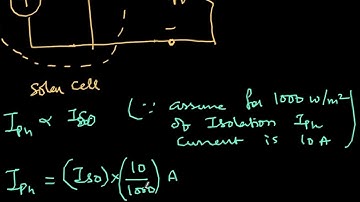 1
Solar cell
I_ph ∝ Iso (∵ assume for 1000 w/m²
of Isolation I_ph
current is 10 A)
I_ph = (Iso) × (10/1000) A